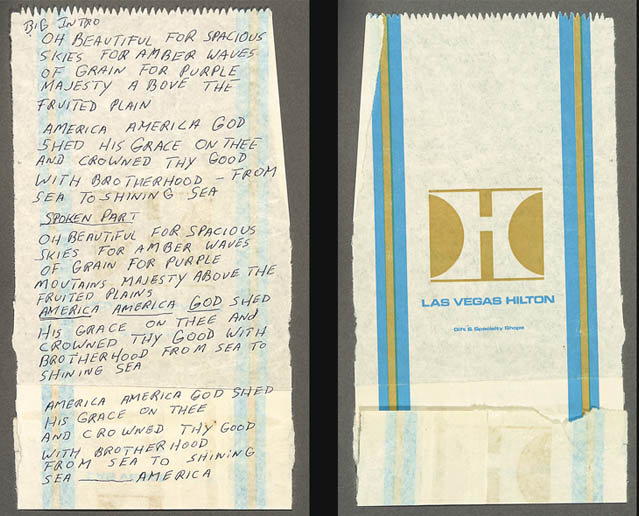 BIG INTRO
OH BEAUTIFUL FOR SPACIOUS
SKIES FOR AMBER WAVES
OF GRAIN FOR PURPLE
MAJESTY ABOVE THE
FRUITED PLAIN
AMERICA AMERICA GOD
SHED HIS GRACE ON THEE
AND CROWNED THY GOOD
WITH BROTHERHOOD - FROM
SEA TO SHINING SEA
SPOKEN PART
OH BEAUTIFUL FOR SPACIOUS
SKIES FOR AMBER WAVES
OF GRAIN FOR PURPLE
MOUTAINS MAJESTY ABOVE THE
FRUITED PLAINS
AMERICA AMERICA GOD SHED
HIS GRACE ON THEE AND
CROWNED THY GOOD WITH
BROTHERHOOD FROM SEA TO
SHINING SEA
AMERICA AMERICA GOD SHED
HIS GRACE ON THEE
AND CROWNED THY GOOD
WITH BROTHERHOOD
FROM SEA TO SHINING
SEA ——— AMERICA
H
LAS VEGAS HILTON
Gift & Specialty Shops